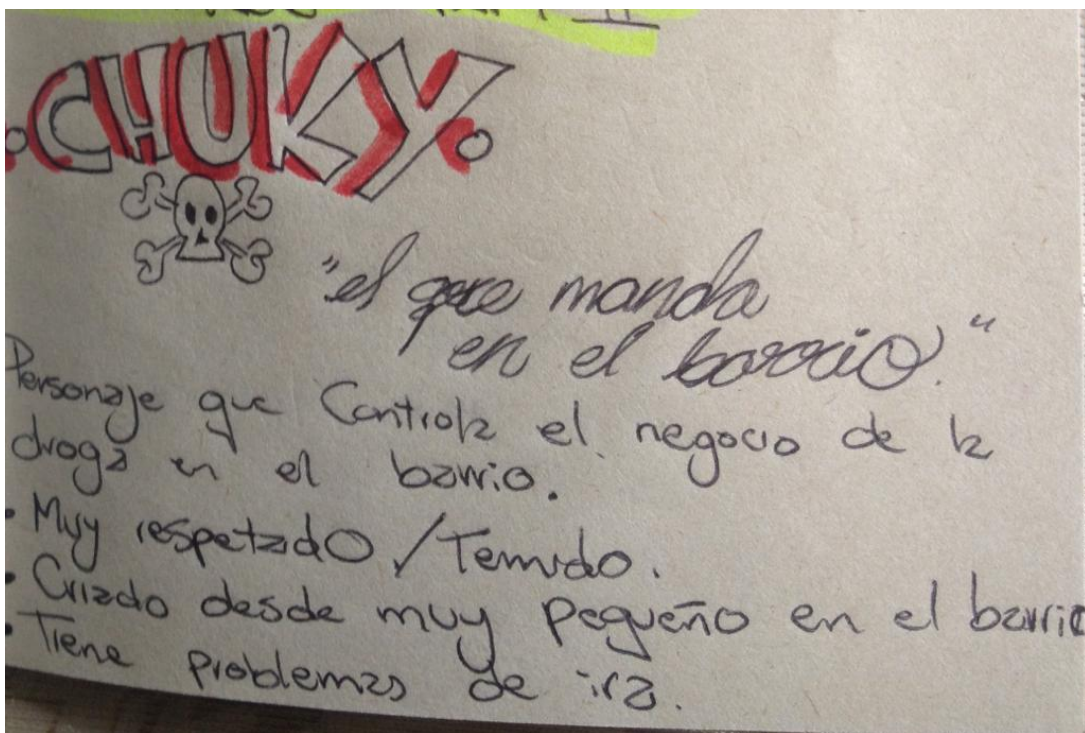 .CHUKY.
"el que manda
en el barrio."
Personaje que Controla el negocio de la
droga en el barrio.
• Muy respetado / Temido.
• Criado desde muy pequeño en el barrio
• Tiene problemas de ira.